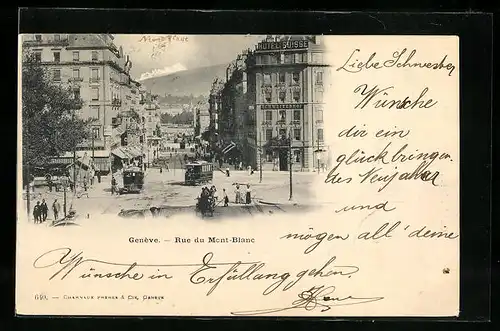 Mont-Blanc
HOTEL SUISSE
SCHWEIZERHOF
Liebe Schwester
Wünsche
dir ein
glückbringen
des Neujahr
und
mögen all' deine
Genève. — Rue du Mont-Blanc
Wünsche in Erfüllung gehen.
640. — Charnaux frères & Cie, Genève